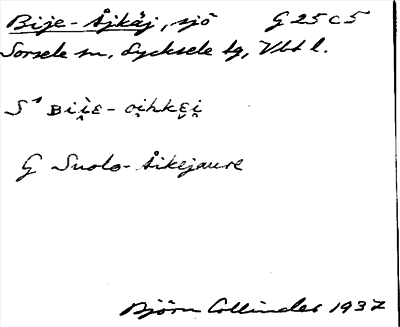 Bije-Åjkåj, sjö G 25 c 5
Sorsele sn, Lycksele tg, Vbt l.
S¹ ʙiı̀ᴇ- oi̯hkᴇi̯
G Suolo-Åikejaure
Björn Collinder 1937